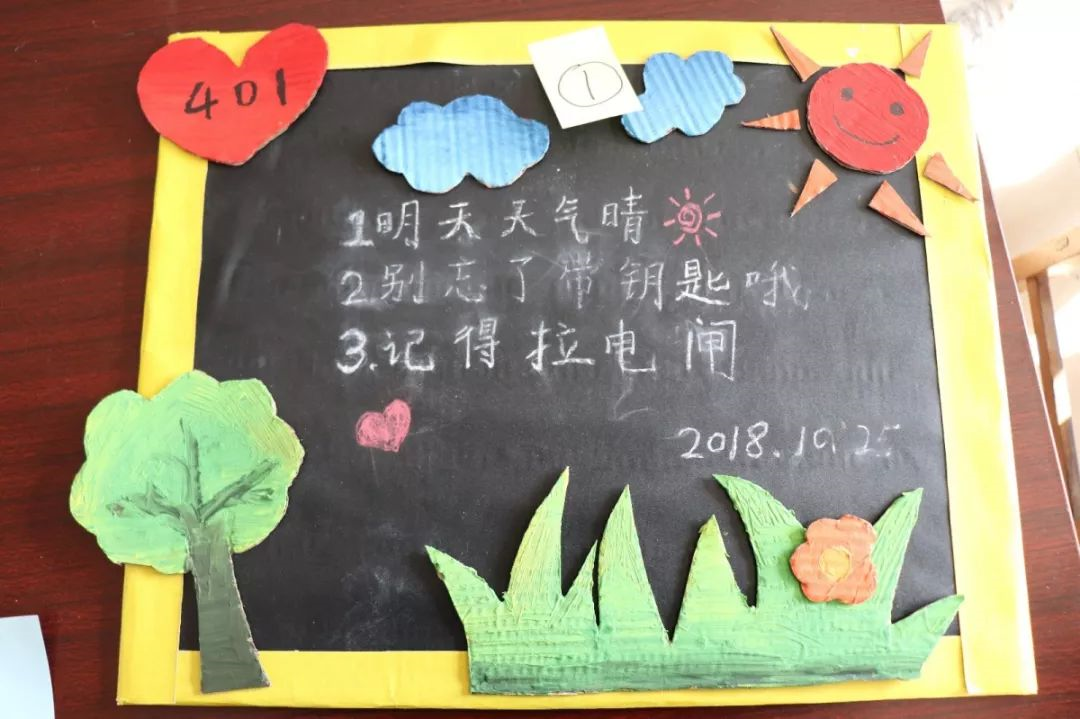 401
①
1明天天气晴
2.别忘了带钥匙哦
3.记得拉电闸
2018.10.25